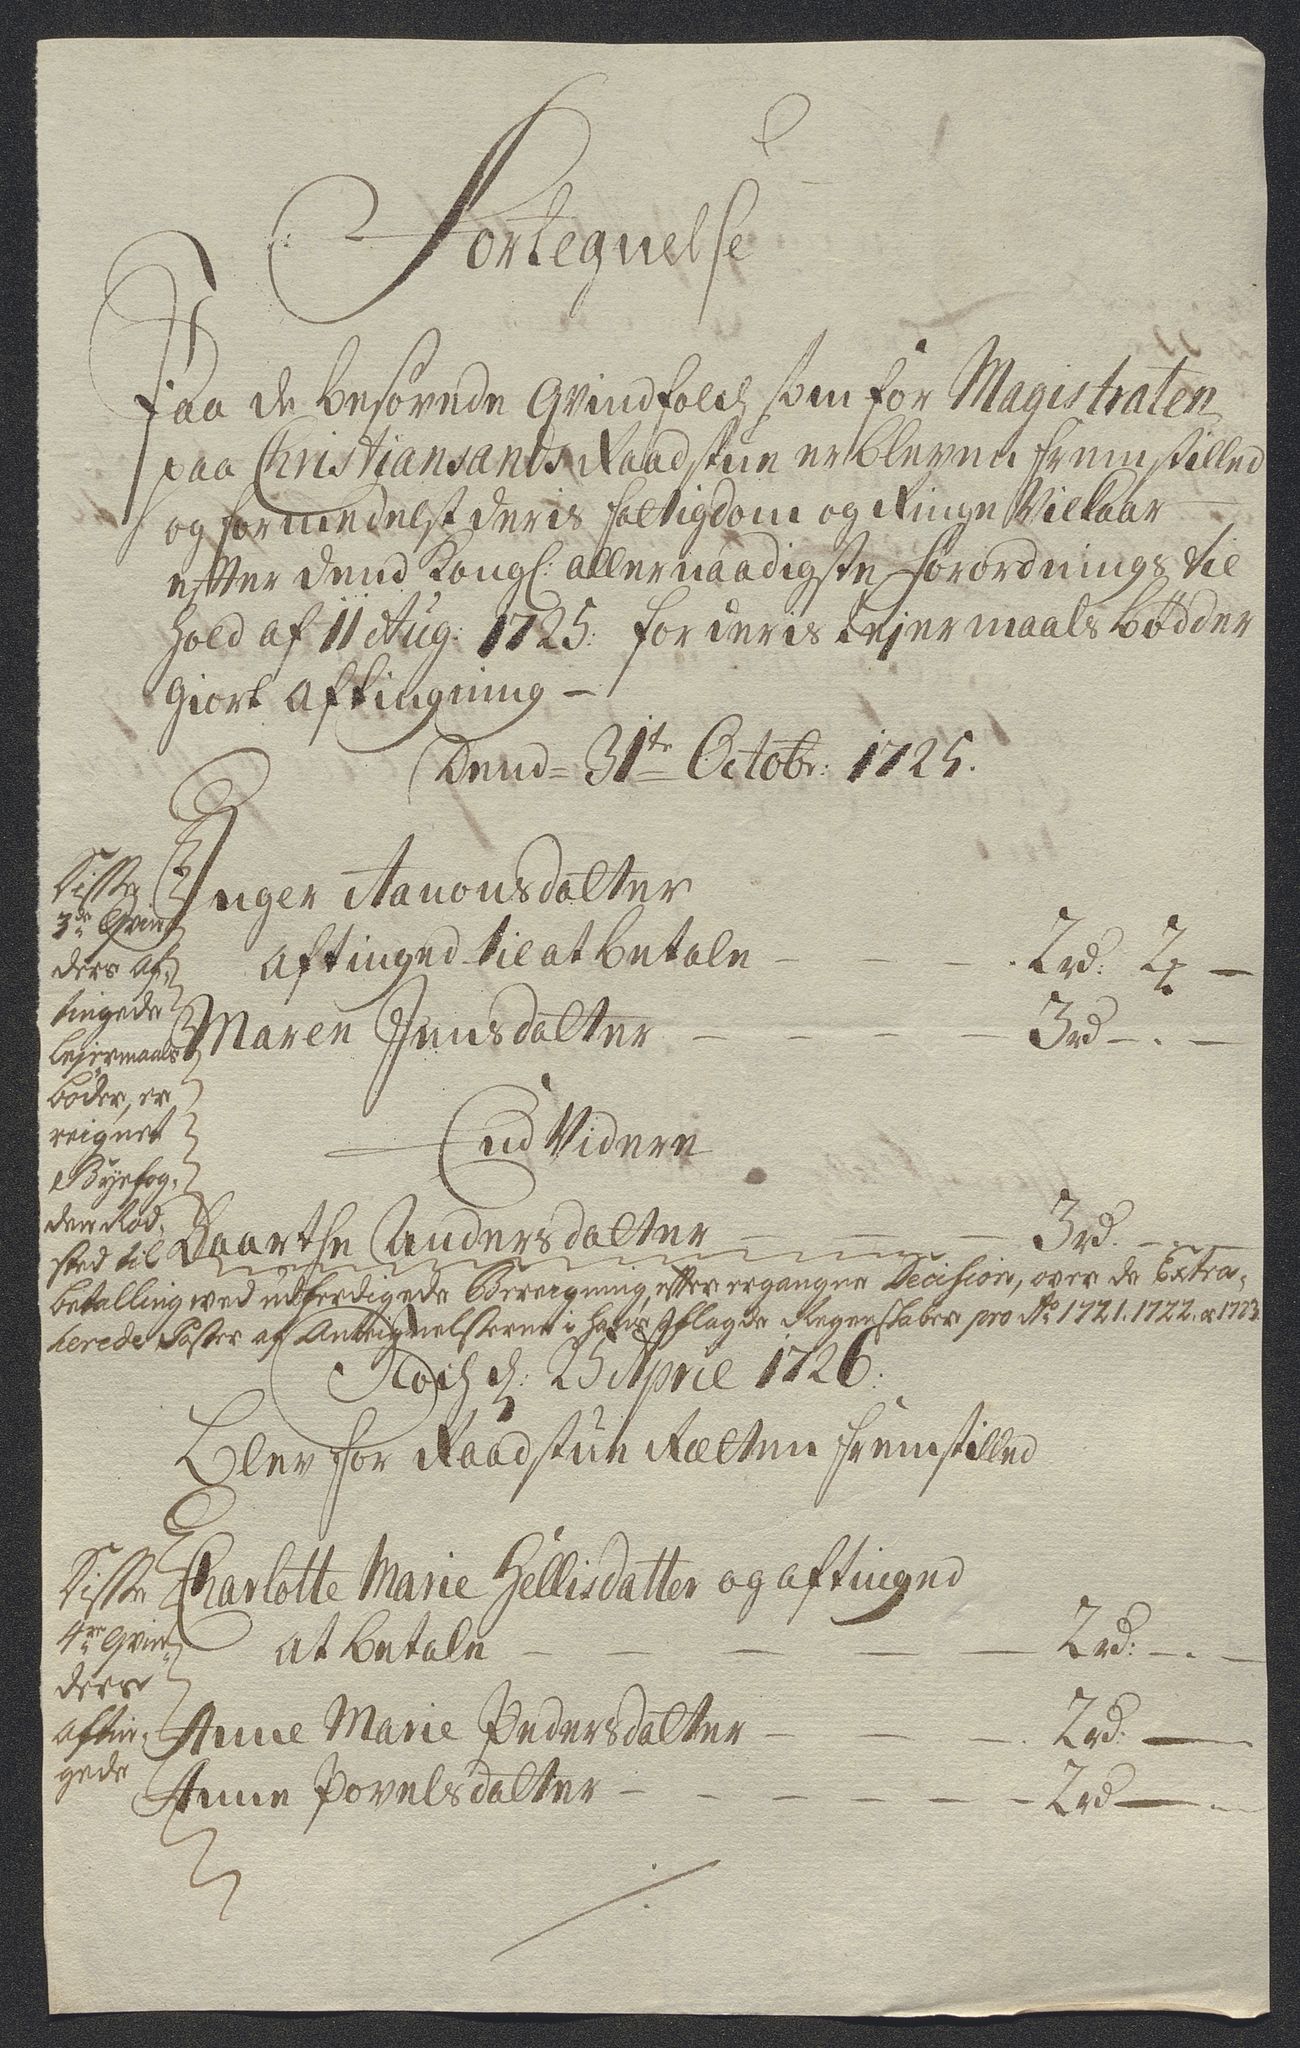 Fortegnelse
Paa de besovede Qvindfolch som for Magistraten
paa Christiansands Raadstue er bleven fremstilled
og formedelst deris fattigdom og Ringe Vilkaar
efter dend Kongl: allernaadigste forordnings til
hold af 11 Aug: 1725: for deris Lejermaals bødder
giort aftingning –
Dend 31te Octobr: 1725.
Inger Aanonsdatter
aftinged til at betale – – – 2 rd: 2 –
Maren Jensdatter – – – 3 rd – . –
End Videre
Daarthe Andersdatter – – – 3 rd. – . –
Disse
3de Qvin
ders af,
tingede
lejermaals
bøder, er
reignet
Byefog,
den Rod,
sted til
betalling ved udferdigede Bereigning, efter ergangne Decision, over de Extra,
herede Poster af Antegnelserne i hans aflagde Regenskaber pro Ao 1721. 1722. & 1723.
Noch d: 25 April 1726:
Blev for Raadstue Rætten fremstilled
Charlotte Marie Hellisdatter og aftinged
at betale – – – – – 2 rd: – . –
Anne Marie Pedersdatter – – – 2 rd: –
Anne Povelsdatter – – – – – – 2 rd – . –
Disse
4re Qvin,
ders
aftin,
gede